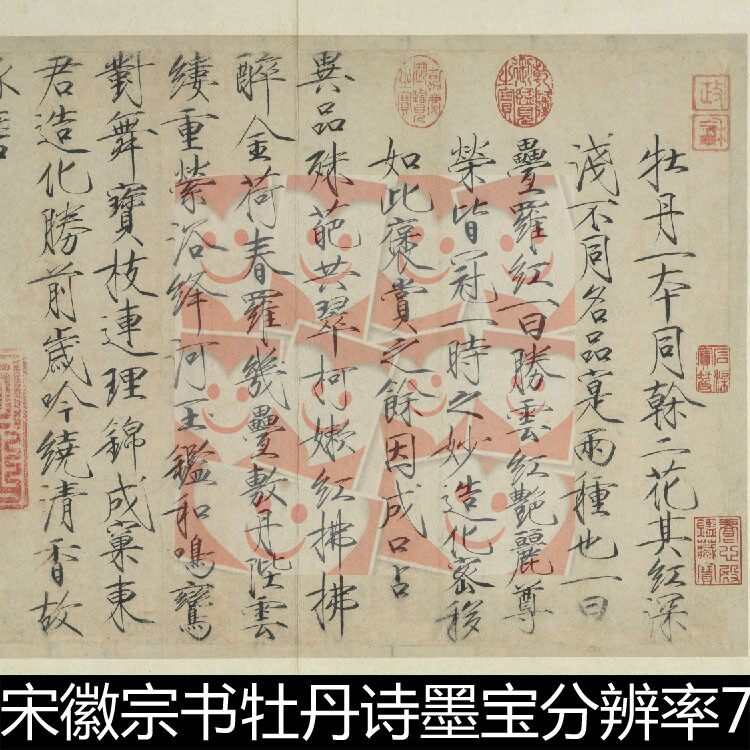 牡丹一本同榦二花其紅深
淺不同名品寔兩種也一曰
疊羅紅一曰勝雲紅艷麗尊
榮皆冠一時之妙造化密移
如此褒賞之餘因成口占
異品殊葩共翠柯嫩紅拂拂
醉金荷春羅幾疊敷丹陛雲
縷重縈浴絳河玉鑑和鳴鸞
對舞寶枝連理錦成窠東
君造化勝前歲吟繞清香故
琢磨
宋徽宗书牡丹诗墨宝分辨率7